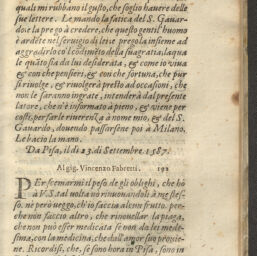 quali mi rubbano il gusto, che soglio hauere delle
sue lettere. Le mando la fatica del S. Gauar-
do: e la prego à credere, che questo gentil'huomo
è ardēte nel seruigio di lei: e pregola insieme ad
aggradirlo cō'l cōdimēto della sua gratia, laqua
le quāto sia da lui desiderata, & come io viua
& con che pensieri, & con che fortuna, che pur
si riuolge, & riuolgerà presto ad occasioni, che
non le saranno ingrate, intenderà dal presente
latore, che n'è informato à pieno, & viene per
costì, per farle riuerenza à nome mio, & del S.
Gauardo, douendo passarsene poi à Milano.
Le bacio la mano.
Da Pisa, il dì 23. di Settembre. 1587.
Al sig. Vincenzo Fabretti. 192
PEr scemarmi il peso de gli oblighi, che hò
à V.S. tal uolta nò rinouandoli à me stes-
so. nè però ueggo, ch'io faccia alcun frutto. per-
che non faccio altro, che rinouellar la piaga,
che non può esser medicata se non da lei mede-
sima, con la medicina, che dall'amor suo prouie-
ne. Ricordisi, che, se sono hora in Pisa, sono in